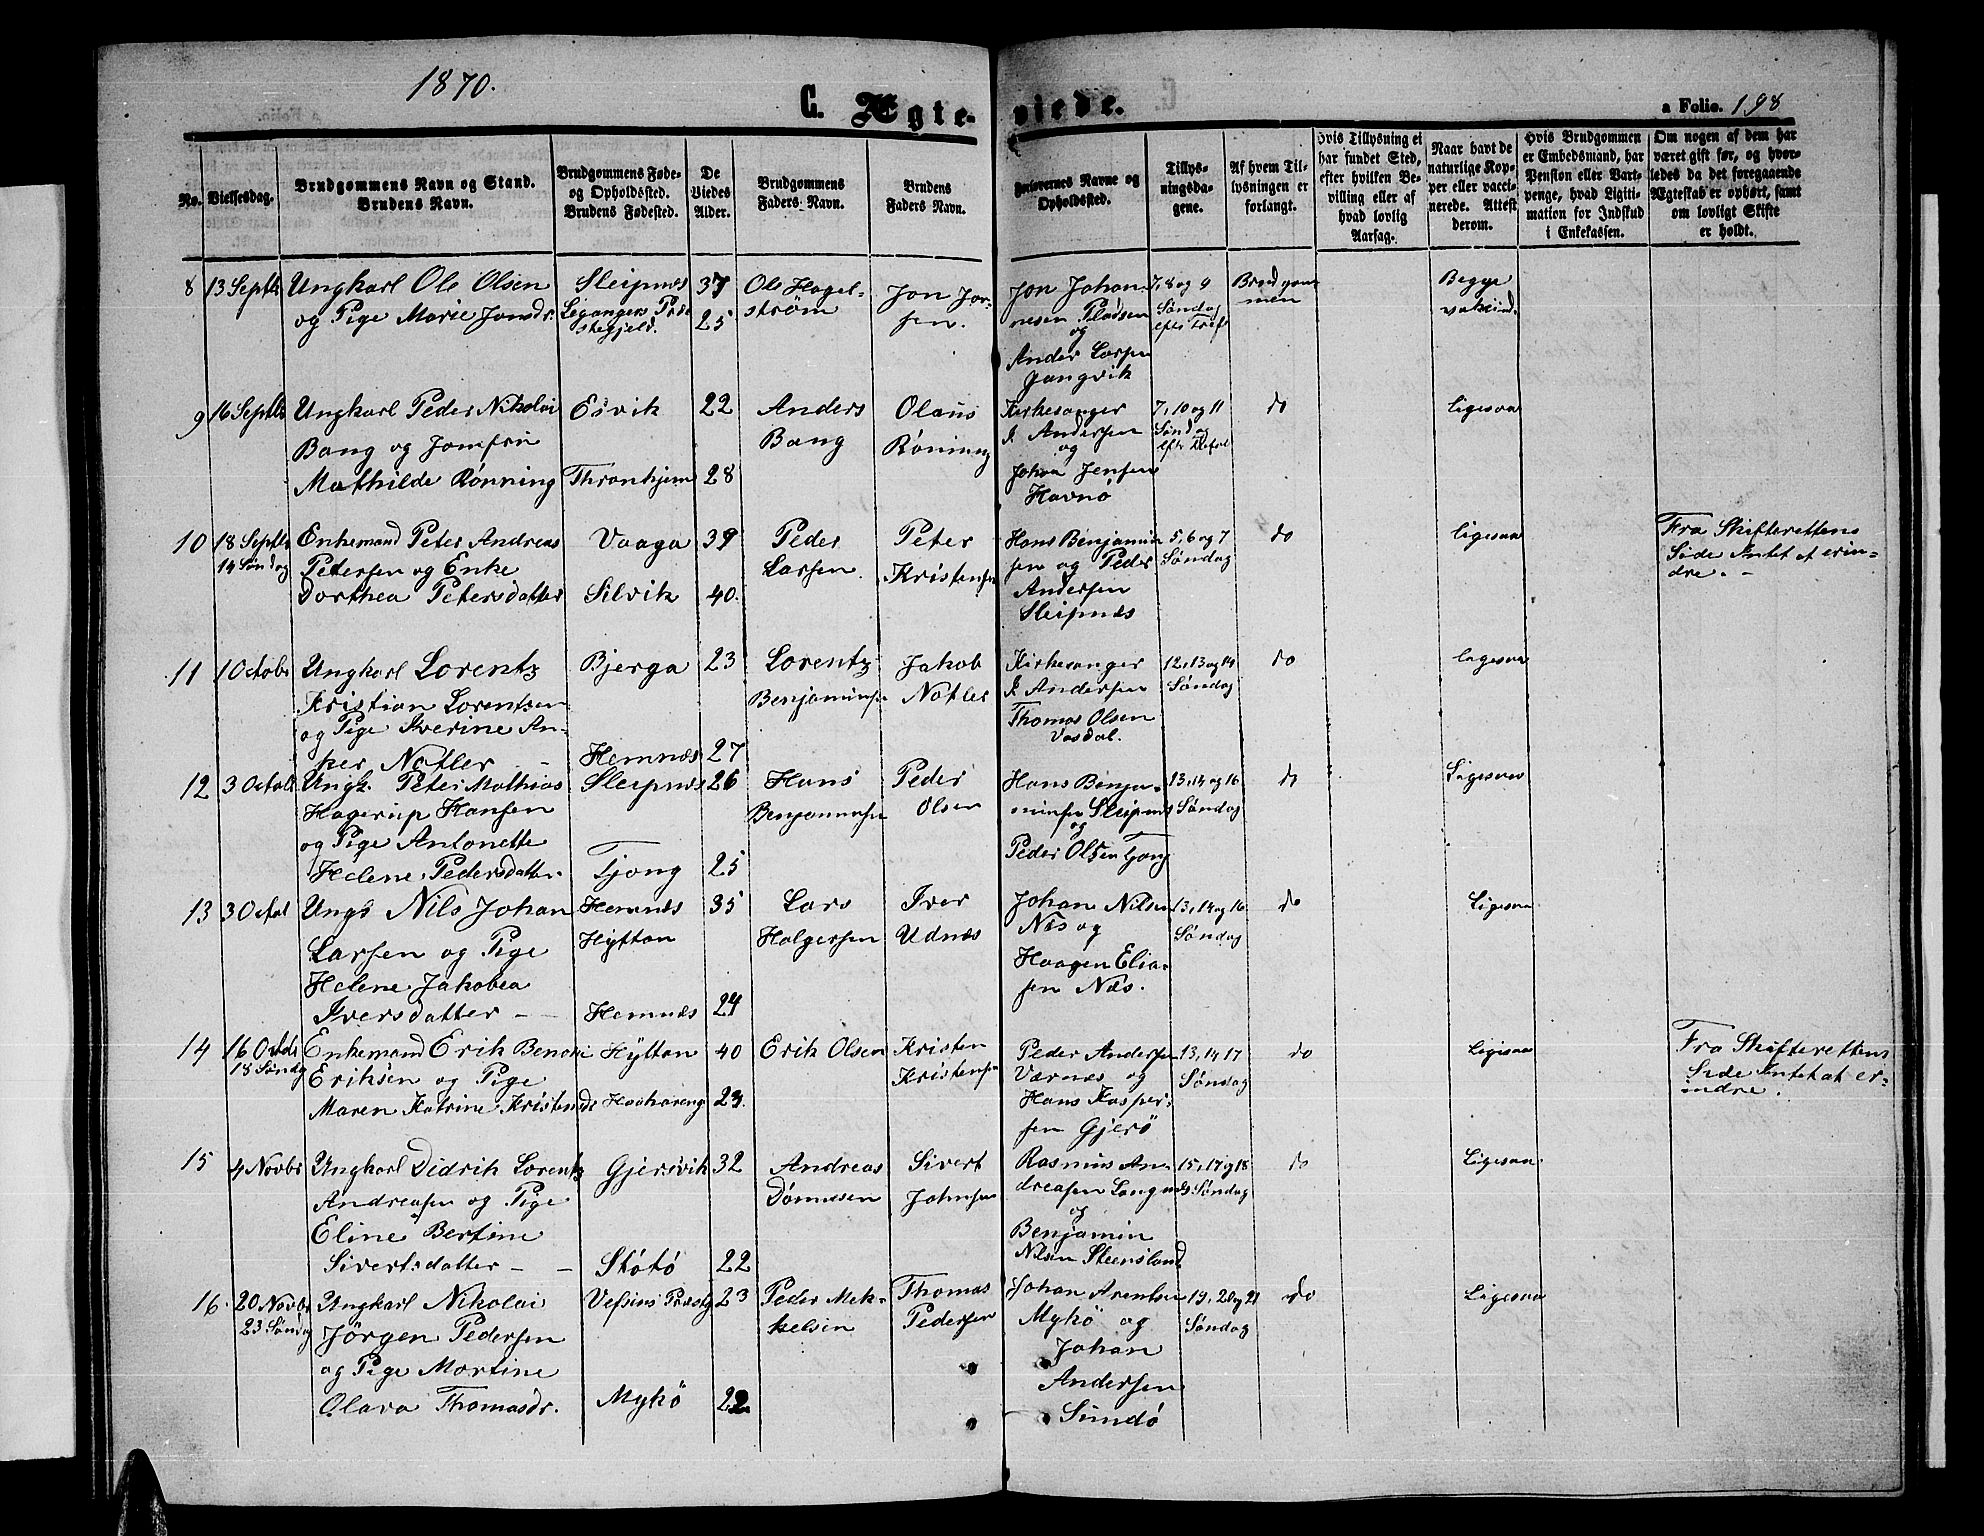 1870.
C. Ægte-
viede.
a Folio. 198
No.
Vielsesdag.
Brudgommens Navn og Stand.
Brudens Navn.
Brudgommens Føde-
og Opholdssted.
Brudens Fødested.
De
Viedes
Alder.
Brudgommens
Faders Navn.
Brudens
Faders Navn.
Forlovernes Navne og
Opholdssted.
Tillys-
ningsda-
gene.
Af hvem Til-
lysningen er
forlangt.
Hvis Tillysning ei
har fundet Sted,
efter hvilken Be-
villing eller af
hvad lovlig
Aarsag.
Naar havt de
naturlige Kop-
per eller vacci-
nerede. Attest
derom.
Hvis Brudgommen
er Embedsmand, har
Pension eller Vart-
penge, hvad Ligiti-
mation for Indskud
i Enkekassen.
Om nogen af dem har
været gift før, og hvor-
ledes da det foregaaende
Ægteskab er ophørt, samt
om lovligt Skifte
er holdt.
8
13 Septb
Ungkarl Ole Olsen
og Pige Marie Jonsdr.
Sleipnes
Leganger Præ
stegjeld.
37
25
Ole Hagel-
strøm
Jon Jor-
sen.
Jon Johan-
nesen
og
Ander Larsen
Gangvik
7, 8 og 9
Søndag
efter Tref
Brudgom
men
Begge
9
16 Septb
Ungkarl Peder Nikolai
Bang og Jomfru
Mathilde Rønning
Esvik
Thronhjem
22
28
Anders
Bang
Olaus
Røning
Kirkesanger
J. Andersen
og
Johan Jensen
Havnø
7, 10 og 11
Søndag
do
Ligesaa
10
18 Septb
14 Søndag
Enkemand Peter Andreas
Petersen og Enke
Dorthea Petersdatter
Vaaga
Silvik
39
40.
Peder
Larsen.
Peter
Kristensen
Hans Benjamin
sen og Peder
Andersen
Sleipnæs
5, 6 og 7
Søndag
do
Ligesaa
Fra Skifterettens
Side Intet at erin-
dre. -
11
1 Octobr
Ungkarl Lorentz
Kristian Lorentsen
og Pige Iverine An-
ker Notler -
Bjerga
Hemnæs
23
27
Lorentz
Benjaminsen
Jakob
Notler
Kirkesanger
J. Andersen
Thomas Olsen
Vasdal.
12, 13 og 14
Søndag
do
Ligesaa
12
3 Octob
Ungk. Peter Mathias
Hagerup Hansen
og Pige Antonette
Helene Pedersdatter
Sleipnes
Tjong
26
25
Hans
Benjaminsen
Peder
Olsen
Hans Benja-
minsen Sleipnes
og
Peder Olsen Tjong
13, 14 og 16
Søndag
do
Ligesaa
13
3 Octol
Ungk Nils Johan
Larsen og Pige
Helene Jakobea
Iversdatter -
Hemnæs
Hyttan
Hemnæs
35
24
Lars
Holgersen
Iver
Udnæs
Johan Nilsen
Næs og
Haagen Elia-
sen Næs.
13, 14 og 16
Søndag
do
Ligesaa
14
16 Octb
18 Søndg
Enkemand Erik Benoni
Eriksen og Pige
Maren Katrine Kristensdr
Hyttan
40
23.
Erik Olsen
Kristen
Kristensen
Peder Andersen
Værnæs og
Hans Kasper-
sen Gjerö
13, 14 17
Søndag
do
Ligesaa
Fra Skifterettens
Side Intet at er-
indre.
15
4 Novbr
Ungkarl Didrik Lorentz
Andreasen og Pige
Eline Bertine
Sivertsdatter - -
Gjersvik
Støtø
32
22
Andreas
Sivert
Johnsen
Rasmus An-
dreasen Langnes
og
Benjamin
Nilsen Steensland
15, 17 og 18
Søndag
do
Ligesaa
16.
20 Novbr
23 Søndag
Ungkarl Nikolai
Jörgen Pedersen
og Pige Martine
Olava Thomasdr.
Vefsens Præstg
Mykö
23
22
Peder Mek-
kelsen
Thomas
Pedersen
Johan Arentsen
Mykö og
Johan
Andersen
Sundö
19, 20 og 21
Søndag
do
Ligesaa